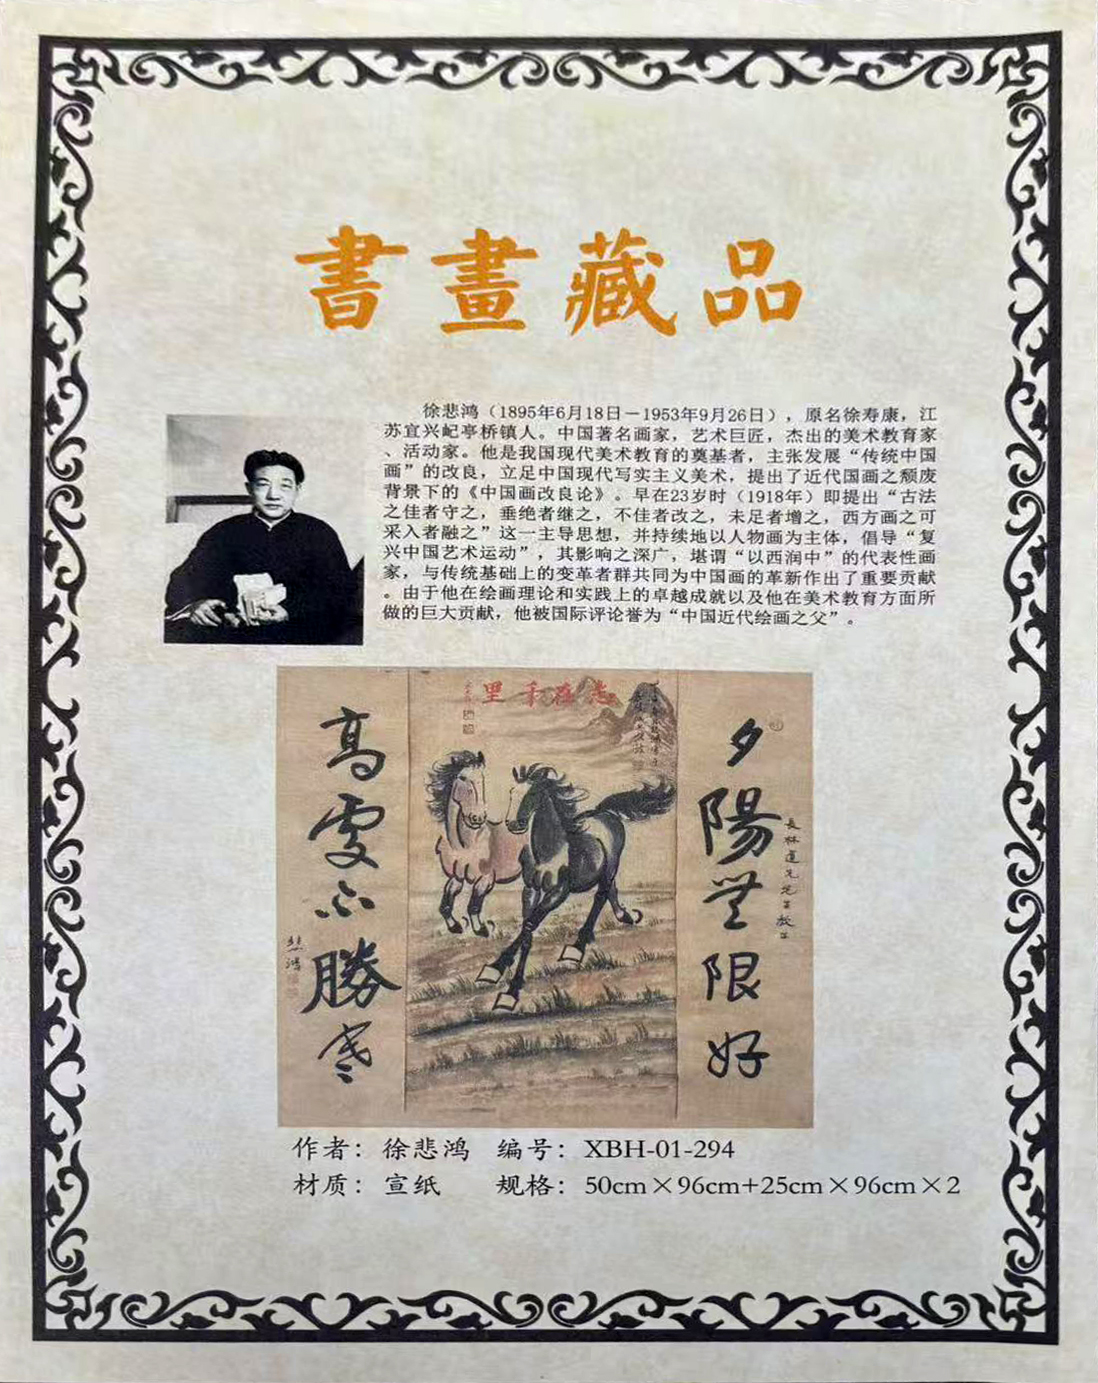 書畫藏品
徐悲鸿（1895年6月18日－1953年9月26日），原名徐寿康，江
苏宜兴屺亭桥镇人。中国著名画家，艺术巨匠，杰出的美术教育家
、活动家。他是我国现代美术教育的奠基者，主张发展“传统中国
画”的改良，立足中国现代写实主义美术，提出了近代国画之颓废
背景下的《中国画改良论》。早在23岁时（1918年）即提出“古法
之佳者守之，垂绝者继之，不佳者改之，未足者增之，西方画之可
采入者融之”这一主导思想，并持续地以人物画为主体，倡导“复
兴中国艺术运动”，其影响之深广，堪谓“以西润中”的代表性画
家，与传统基础上的变革者群共同为中国画的革新作出了重要贡献
。由于他在绘画理论和实践上的卓越成就以及他在美术教育方面所
做的巨大贡献，他被国际评论誉为“中国近代绘画之父”。
志在千里
夕陽無限好
高處不勝寒
悲鴻
作者：徐悲鸿 编号：XBH-01-294
材质：宣纸 规格：50cm×96cm+25cm×96cm×2